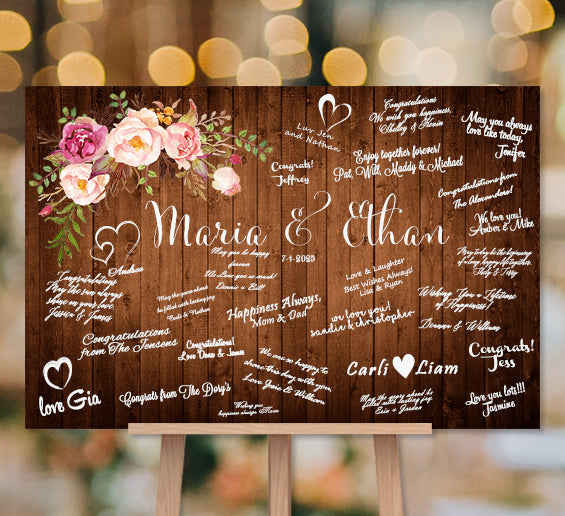 Maria & Ethan
7-1-2023
Luv Jen
and Nathan
Congratulations
We wish you happiness,
Shelley & Kevin
May you always
love like today,
Jenifer
Congrats!
Jeffrey
Enjoy together forever!
Pat, Will, Maddy & Michael
Congratulations from
The Alexanders!
We love you!
Amber & Mike
Andrea
May you be happy
Dennis & Bill
Love & Laughter
Best Wishes Always!
Lisa & Ryan
May today be the beginning
Congratulations
May the sun always
shine on your love,
Jessica & James
May the years ahead
be filled with lasting joy
Happiness Always,
Mom & Dad
we love you!
sandie & christopher
Wishing You a Lifetime
of Happiness!
Donna & William
Congratulations
from The Jensens
Congratulations!
Love Dave & James
We are so happy to
share this day with you
Love Josie & William
Carli Liam
Congrats!
Jess
love Gia
Congrats from The Dory's
Wishing you
happiness always Marie
May the years ahead be
filled with lasting joy.
Erin & Jordan
Love you lots!!!
Jasmine